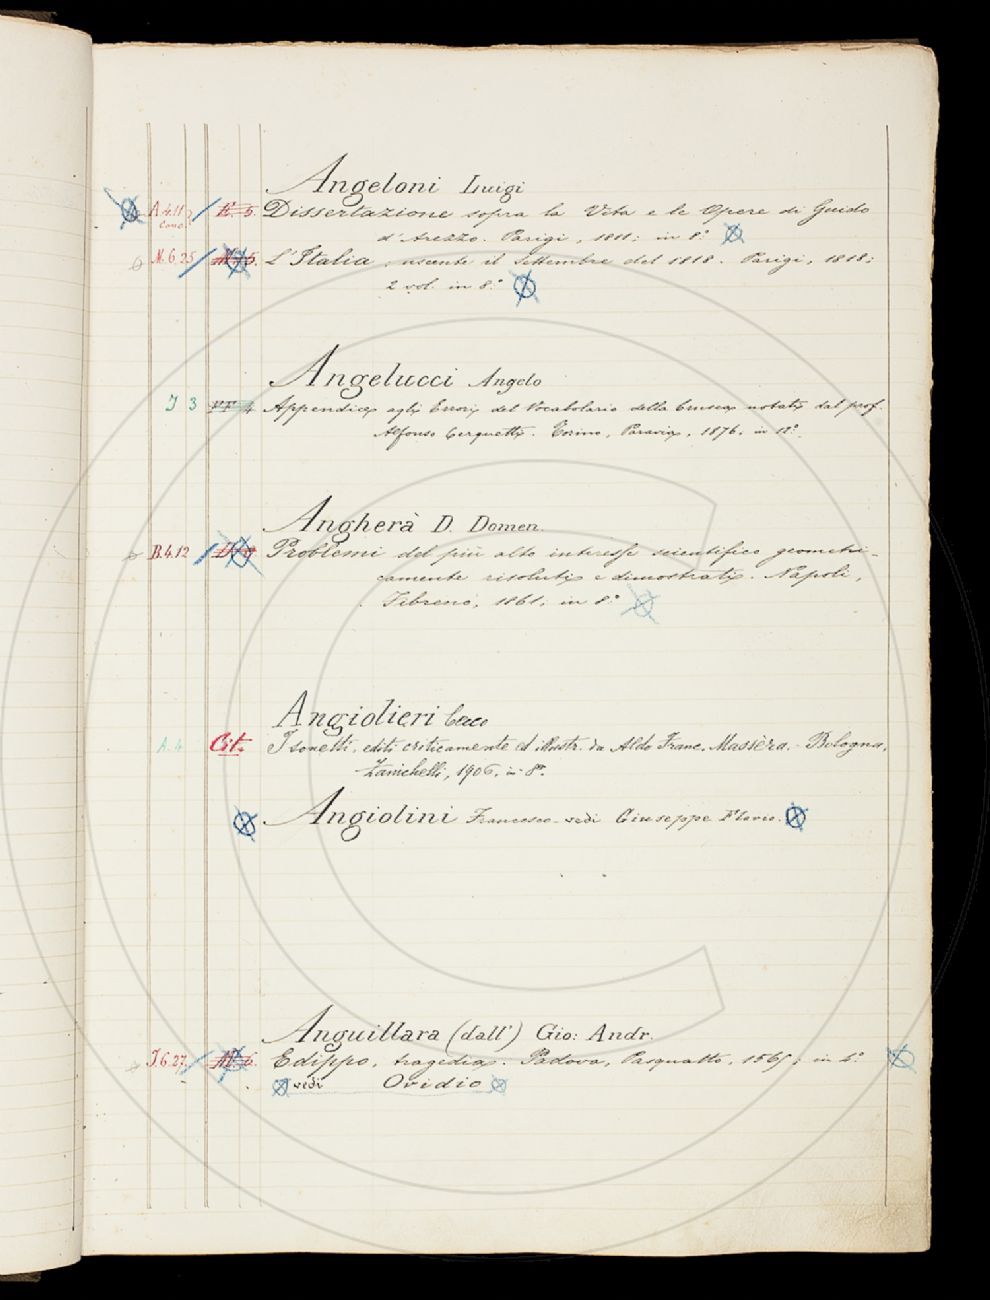 Angeloni Luigi
A.4.11 Dissertazione sopra la Vita e le Opere di Guido
Cono. d'Arezzo. Parigi, 1811; in 8.°
N.6.25 L'Italia, uscente il Settembre del 1818. Parigi, 1818;
2 vol. in 8.°
Angelucci Angelo
I 3 Appendice agli Errori del Vocabolario della Crusca notati dal prof.
Alfonso Cerquetti. Torino, Paravia, 1876, in 12.°
Angherà D. Domen.
B.4.12 Problemi del più alto interesse scientifico geometri-
camente risoluti e dimostrati. Napoli,
Fibreno, 1861; in 8.°
Angiolieri Cecco
A.4 Cit. I sonetti, editi criticamente ed illustr. da Aldo Franc. Masséra. - Bologna,
Zanichelli, 1906, in 8°.
Angiolini Francesco - vedi Giuseppe Flavio.
Anguillara (dall') Gio: Andr.
I.6.27 Edippo, tragedia. Padova, Pasquatto, 1565; in 4.°
vedi Ovidio